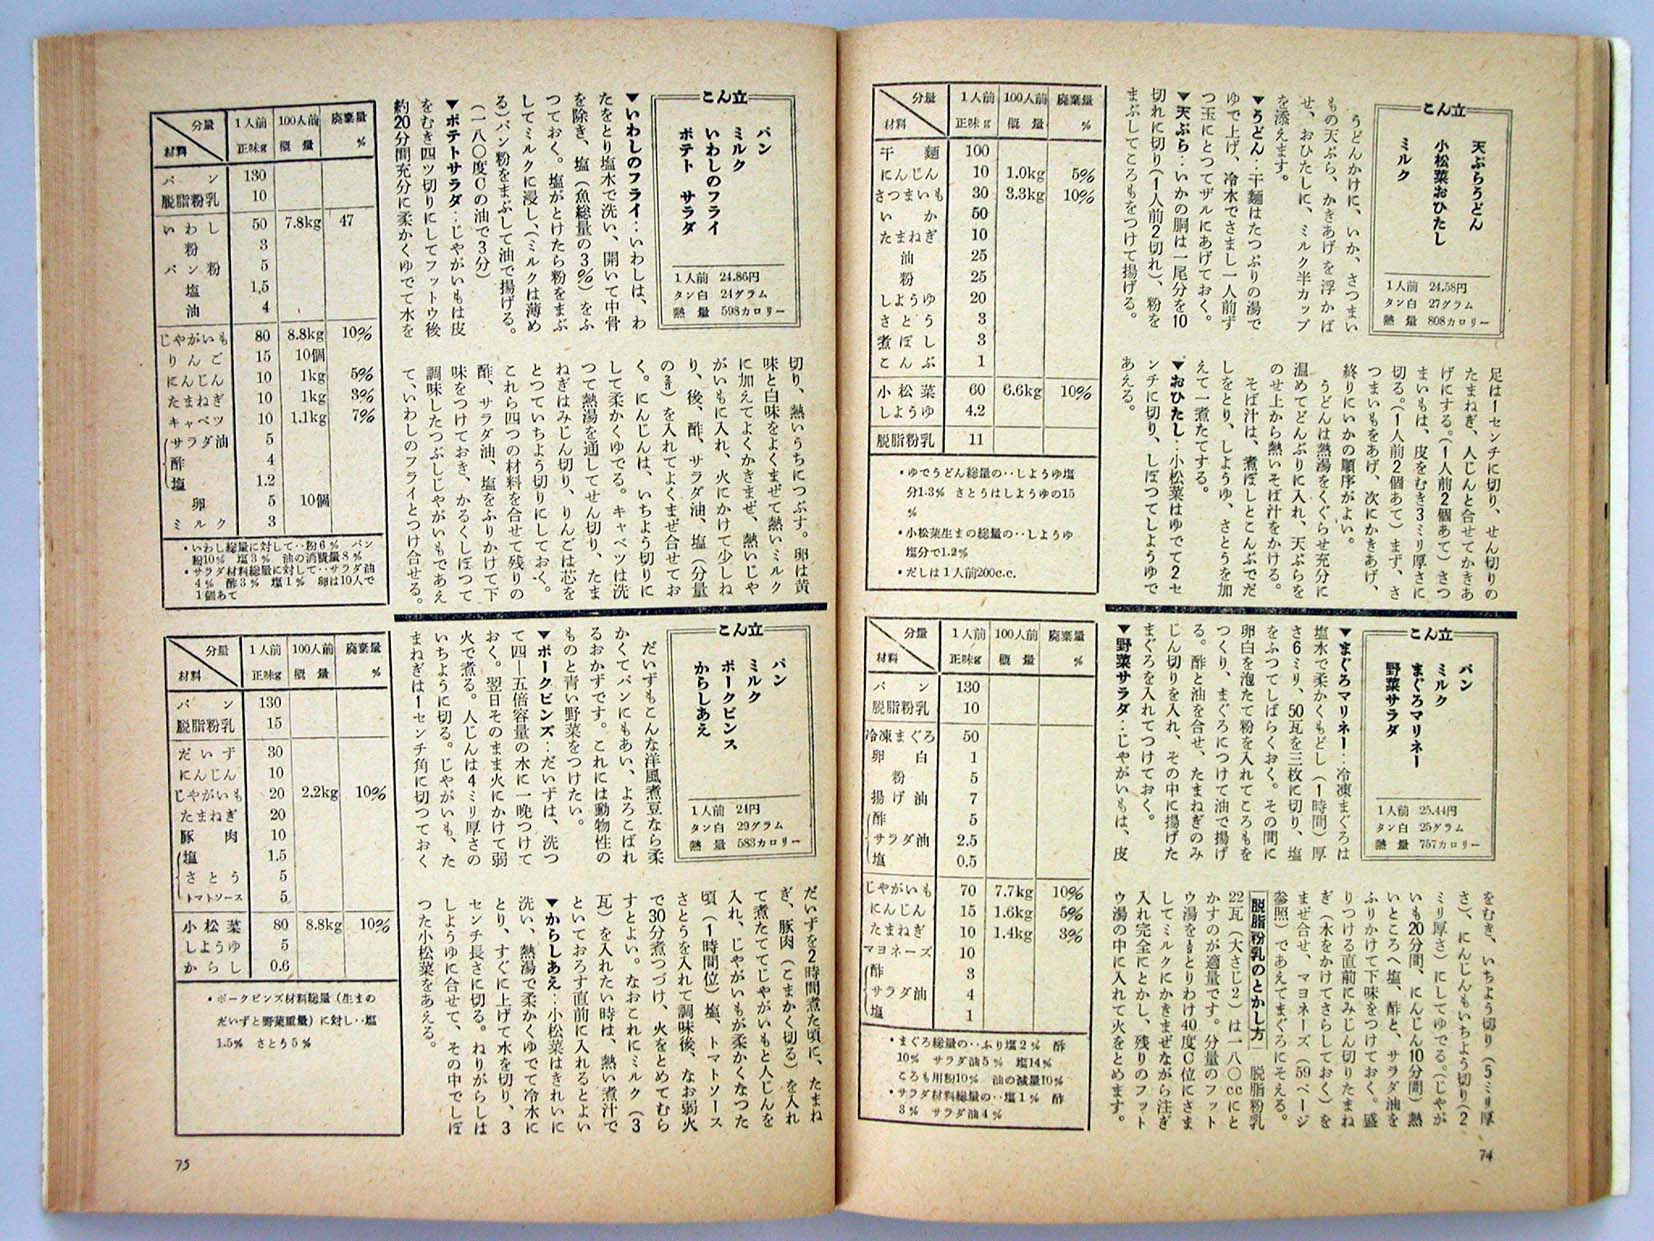 こん立
天ぷらうどん
小松菜おひたし
ミルク
1人前 24.58円
タン白 27グラム
熱量 808カロリー
うどんかけに、いか、さつまい
もの天ぷら、かきあげを浮かば
せ、おひたしに、ミルク半カップ
を添えます。
▼うどん‥干麺はたつぷりの湯で
ゆで上げ、冷水でさまし一人前ず
つ玉にとつてザルにあげておく。
▼天ぷら‥いかの胴は一尾分を10
切れに切り(1人前2切れ)、粉を
まぶしてころもをつけて揚げる。
足は1センチに切り、せん切りの
たまねぎ、人じんと合せてかきあ
げにする。(1人前2個あて)さつ
まいもは、皮をむき3ミリ厚さに
切る。(1人前2個あて)まず、さ
つまいもをあげ、次にかきあげ、
終りにいかの順序がよい。
うどんは熱湯をくぐらせ充分に
温めてどんぶりに入れ、天ぷらを
のせ上から熱いそば汁をかける。
そば汁は、煮ぼしとこんぶでだ
しをとり、しようゆ、さとうを加
えて一煮たてする。
▼おひたし‥小松菜はゆでて2セ
ンチに切り、しぼつてしようゆで
あえる。
分量 材料 1人前正味g 100人前概量 廃棄量%
干麺 100
にんじん 10 1.0kg 5%
さつまいも 30 3.3kg 10%
いか 50
たまねぎ 10
油 25
粉 25
しようゆ 20
さとう 3
煮ぼし 3
こんぶ 1
小松菜 60 6.6kg 10%
しようゆ 4.2
脱脂粉乳 11
・ゆでうどん総量の‥しようゆ塩
分1.3% さとうはしようゆの15
%
・小松菜生まの総量の‥しようゆ
塩分で1.2%
・だしは1人前200c.c.
こん立
パン
ミルク
まぐろマリネー
野菜サラダ
1人前 25.44円
タン白 25グラム
熱量 757カロリー
▼まぐろマリネー‥冷凍まぐろは
塩水で柔かくもどし(1時間)厚
さ6ミリ、50瓦を三枚に切り、塩
をふつてしばらくおく。その間に
卵白を泡たて粉を入れてころもを
つくり、まぐろにつけて油で揚げ
る。酢と油を合せ、たまねぎのみ
じん切りを入れ、その中に揚げた
まぐろを入れてつけておく。
▼野菜サラダ‥じやがいもは、皮
をむき、いちよう切り(5ミリ厚
さ)、にんじんもいちよう切り(2
ミリ厚さ)にしてゆでる。(じやが
いも20分間、にんじん10分間)熱
いところへ塩、酢と、サラダ油を
ふりかけて下味をつけておく。盛
りつける直前にみじん切りたまね
ぎ(水をかけてさらしておく)を
まぜ合せ、マヨネーズ(59ページ
参照)であえてまぐろにそえる。
脱脂粉乳のとかし方 脱脂粉乳
22瓦(大さじ2)は一八〇ccにと
かすのが適量です。分量のフット
ウ湯を⅓とりわけ40度C位にさま
してミルクにかきまぜながら注ぎ
入れ完全にとかし、残りのフット
ウ湯の中に入れて火をとめます。
分量 材料 1人前正味g 100人前概量 廃棄量%
パン 130
脱脂粉乳 10
冷凍まぐろ 50
卵白 1
粉 5
揚げ油 7
酢 5
サラダ油 2.5
塩 0.5
じやがいも 70 7.7kg 10%
にんじん 15 1.6kg 5%
たまねぎ 10 1.4kg 3%
マヨネーズ 10
酢 3
サラダ油 4
塩 1
・まぐろ総量の‥ふり塩2% 酢
10% サラダ油5% 塩14%
ころも用粉10% 油の減量10%
・サラダ材料総量の‥塩1% 酢
3% サラダ油4%
74
こん立
パン
ミルク
いわしのフライ
ポテト サラダ
1人前 24.86円
タン白 24グラム
熱量 598カロリー
▼いわしのフライ‥いわしは、わ
たをとり塩水で洗い、開いて中骨
を除き、塩(魚総量の3%)をふ
つておく。塩がとけたら粉をまぶ
してミルクに浸し、(ミルクは薄め
る)パン粉をまぶして油で揚げる。
(一八〇度Cの油で3分)
▼ポテトサラダ‥じやがいもは皮
をむき四ツ切りにしてフットウ後
約20分間充分に柔かくゆでて水を
切り、熱いうちにつぶす。卵は黄
味と白味をよくまぜて熱いミルク
に加えてよくかきまぜ、熱いじや
がいもに入れ、火にかけて少しね
り、後、酢、サラダ油、塩(分量
の⅔)を入れてよくまぜ合せてお
く。にんじんは、いちよう切りに
して柔かくゆでる。キャベツは洗
つて熱湯を通してせん切り、たま
ねぎはみじん切り、りんごは芯を
とつていちよう切りにしておく。
これら四つの材料を合せて残りの
酢、サラダ油、塩をふりかけて下
味をつけておき、かるくしぼつて
調味したつぶしじやがいもであえ
て、いわしのフライとつけ合せる。
分量 材料 1人前正味g 100人前概量 廃棄量%
パン 130
脱脂粉乳 10
いわし 50 7.8kg 47
粉 3
パン粉 5
塩 1,5
油 4
じやがいも 80 8.8kg 10%
りんご 15 10個
にんじん 10 1kg 5%
たまねぎ 10 1kg 3%
キャベツ 10 1.1kg 7%
サラダ油 5
酢 4
塩 1.2
卵 5 10個
ミルク 3
・いわし総量に対して‥粉6% パン
粉10% 塩3% 油の消費量8%
・サラダ材料総量に対して‥サラダ油
4% 酢3% 塩1% 卵は10人で
1個あて
こん立
パン
ミルク
ポークビンス
からしあえ
1人前 24円
タン白 29グラム
熱量 583カロリー
だいずもこんな洋風煮豆なら柔
かくてパンにもあい、よろこばれ
るおかずです。これには動物性の
ものと青い野菜をつけたい。
▼ポークビンズ‥だいずは、洗つ
て四—五倍容量の水に一晩つけて
おく。翌日そのまま火にかけて弱
火で煮る。人じんは4ミリ厚さの
いちように切る。じやがいも、た
まねぎは1センチ角に切つておく
だいずを2時間煮た頃に、たまね
ぎ、豚肉(こまかく切る)を入れ
て煮たててじやがいもと人じんを
入れ、じやがいもが柔かくなつた
頃(1時間位)塩、トマトソース
さとうを入れて調味後、なお弱火
で30分煮つづけ、火をとめてむら
すとよい。なおこれにミルク(3
瓦)を入れたい時は、熱い煮汁で
といておろす直前に入れるとよい
▼からしあえ‥小松菜はきれいに
洗い、熱湯で柔かくゆでて冷水に
とり、すぐに上げて水を切り、3
センチ長さに切る。ねりがらしは
しようゆに合せて、その中でしぼ
つた小松菜をあえる。
分量 材料 1人前正味g 100人前概量 廃棄量%
パン 130
脱脂粉乳 15
だいず 30
にんじん 10
じやがいも 20 2.2kg 10%
たまねぎ 20
豚肉 10
塩 1.5
さとう 5
トマトソース 5
小松菜 80 8.8kg 10%
しようゆ 5
からし 0.6
・ポークビンズ材料総量(生まの
だいずと野菜重量)に対し‥塩
1.5% さとう5%
75